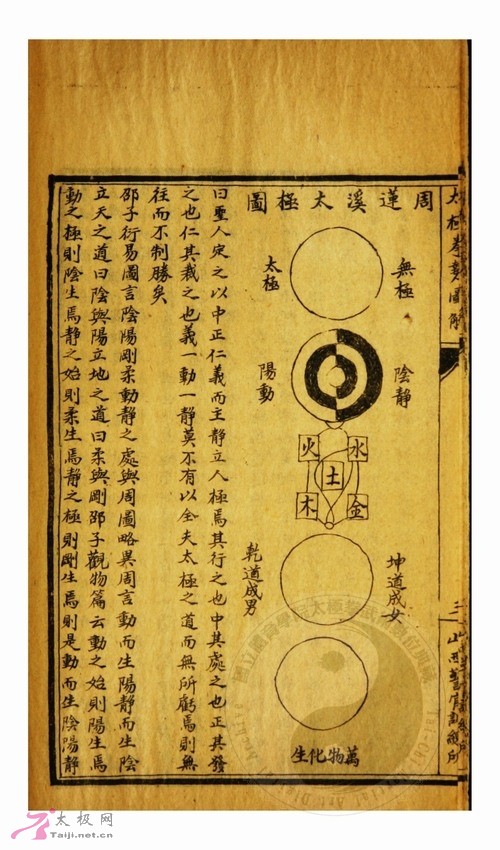 太極拳勢圖解
三
周蓮溪太極圖
無極
太極
陰靜
陽動
水
火
土
金
木
坤道成女
乾道成男
萬物化生
曰聖人定之以中正仁義而主靜立人極焉其行之也中其處之也正其發
之也仁其裁之也義一動一靜莫不有以全夫太極之道而無所虧焉則無
往而不制勝矣
邵子衍易圖言陰陽剛柔動靜之處與周圖略異周言動而生陽靜而生陰
立天之道曰陰與陽立地之道曰柔與剛邵子觀物篇云動之始則陽生焉
動之極則陰生焉靜之始則柔生焉靜之極則剛生焉則是動而生陰陽靜
太极网
Taiji.net.cn